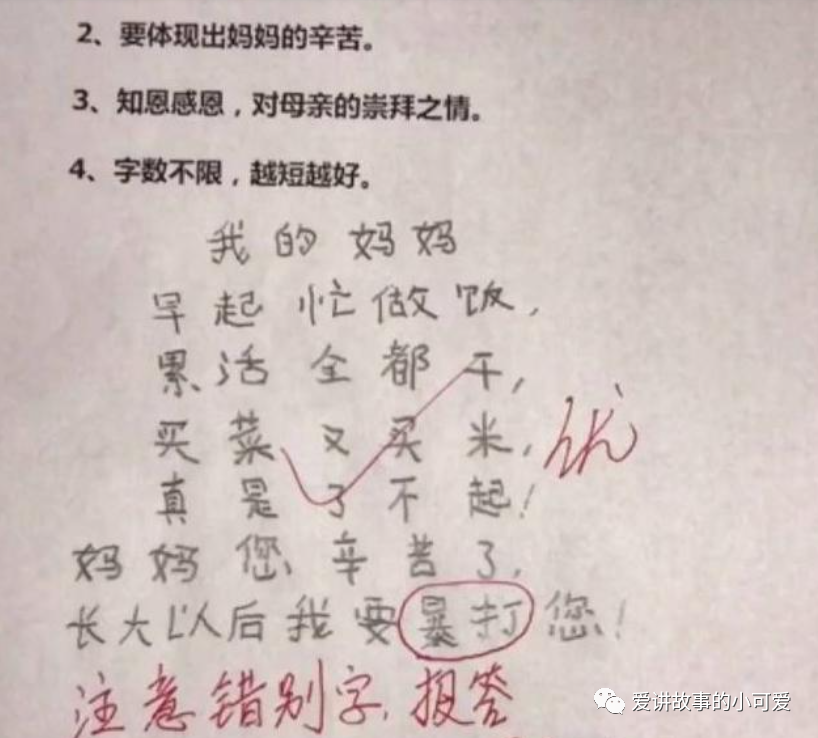 2、要体现出妈妈的辛苦。
3、知恩感恩，对母亲的崇拜之情。
4、字数不限，越短越好。
我的妈妈
早起忙做饭，
累活全都干，
买菜又买米，
真是了不起！
优
妈妈您辛苦了，
长大以后我要暴打您！
注意错别字，报答
爱讲故事的小可爱